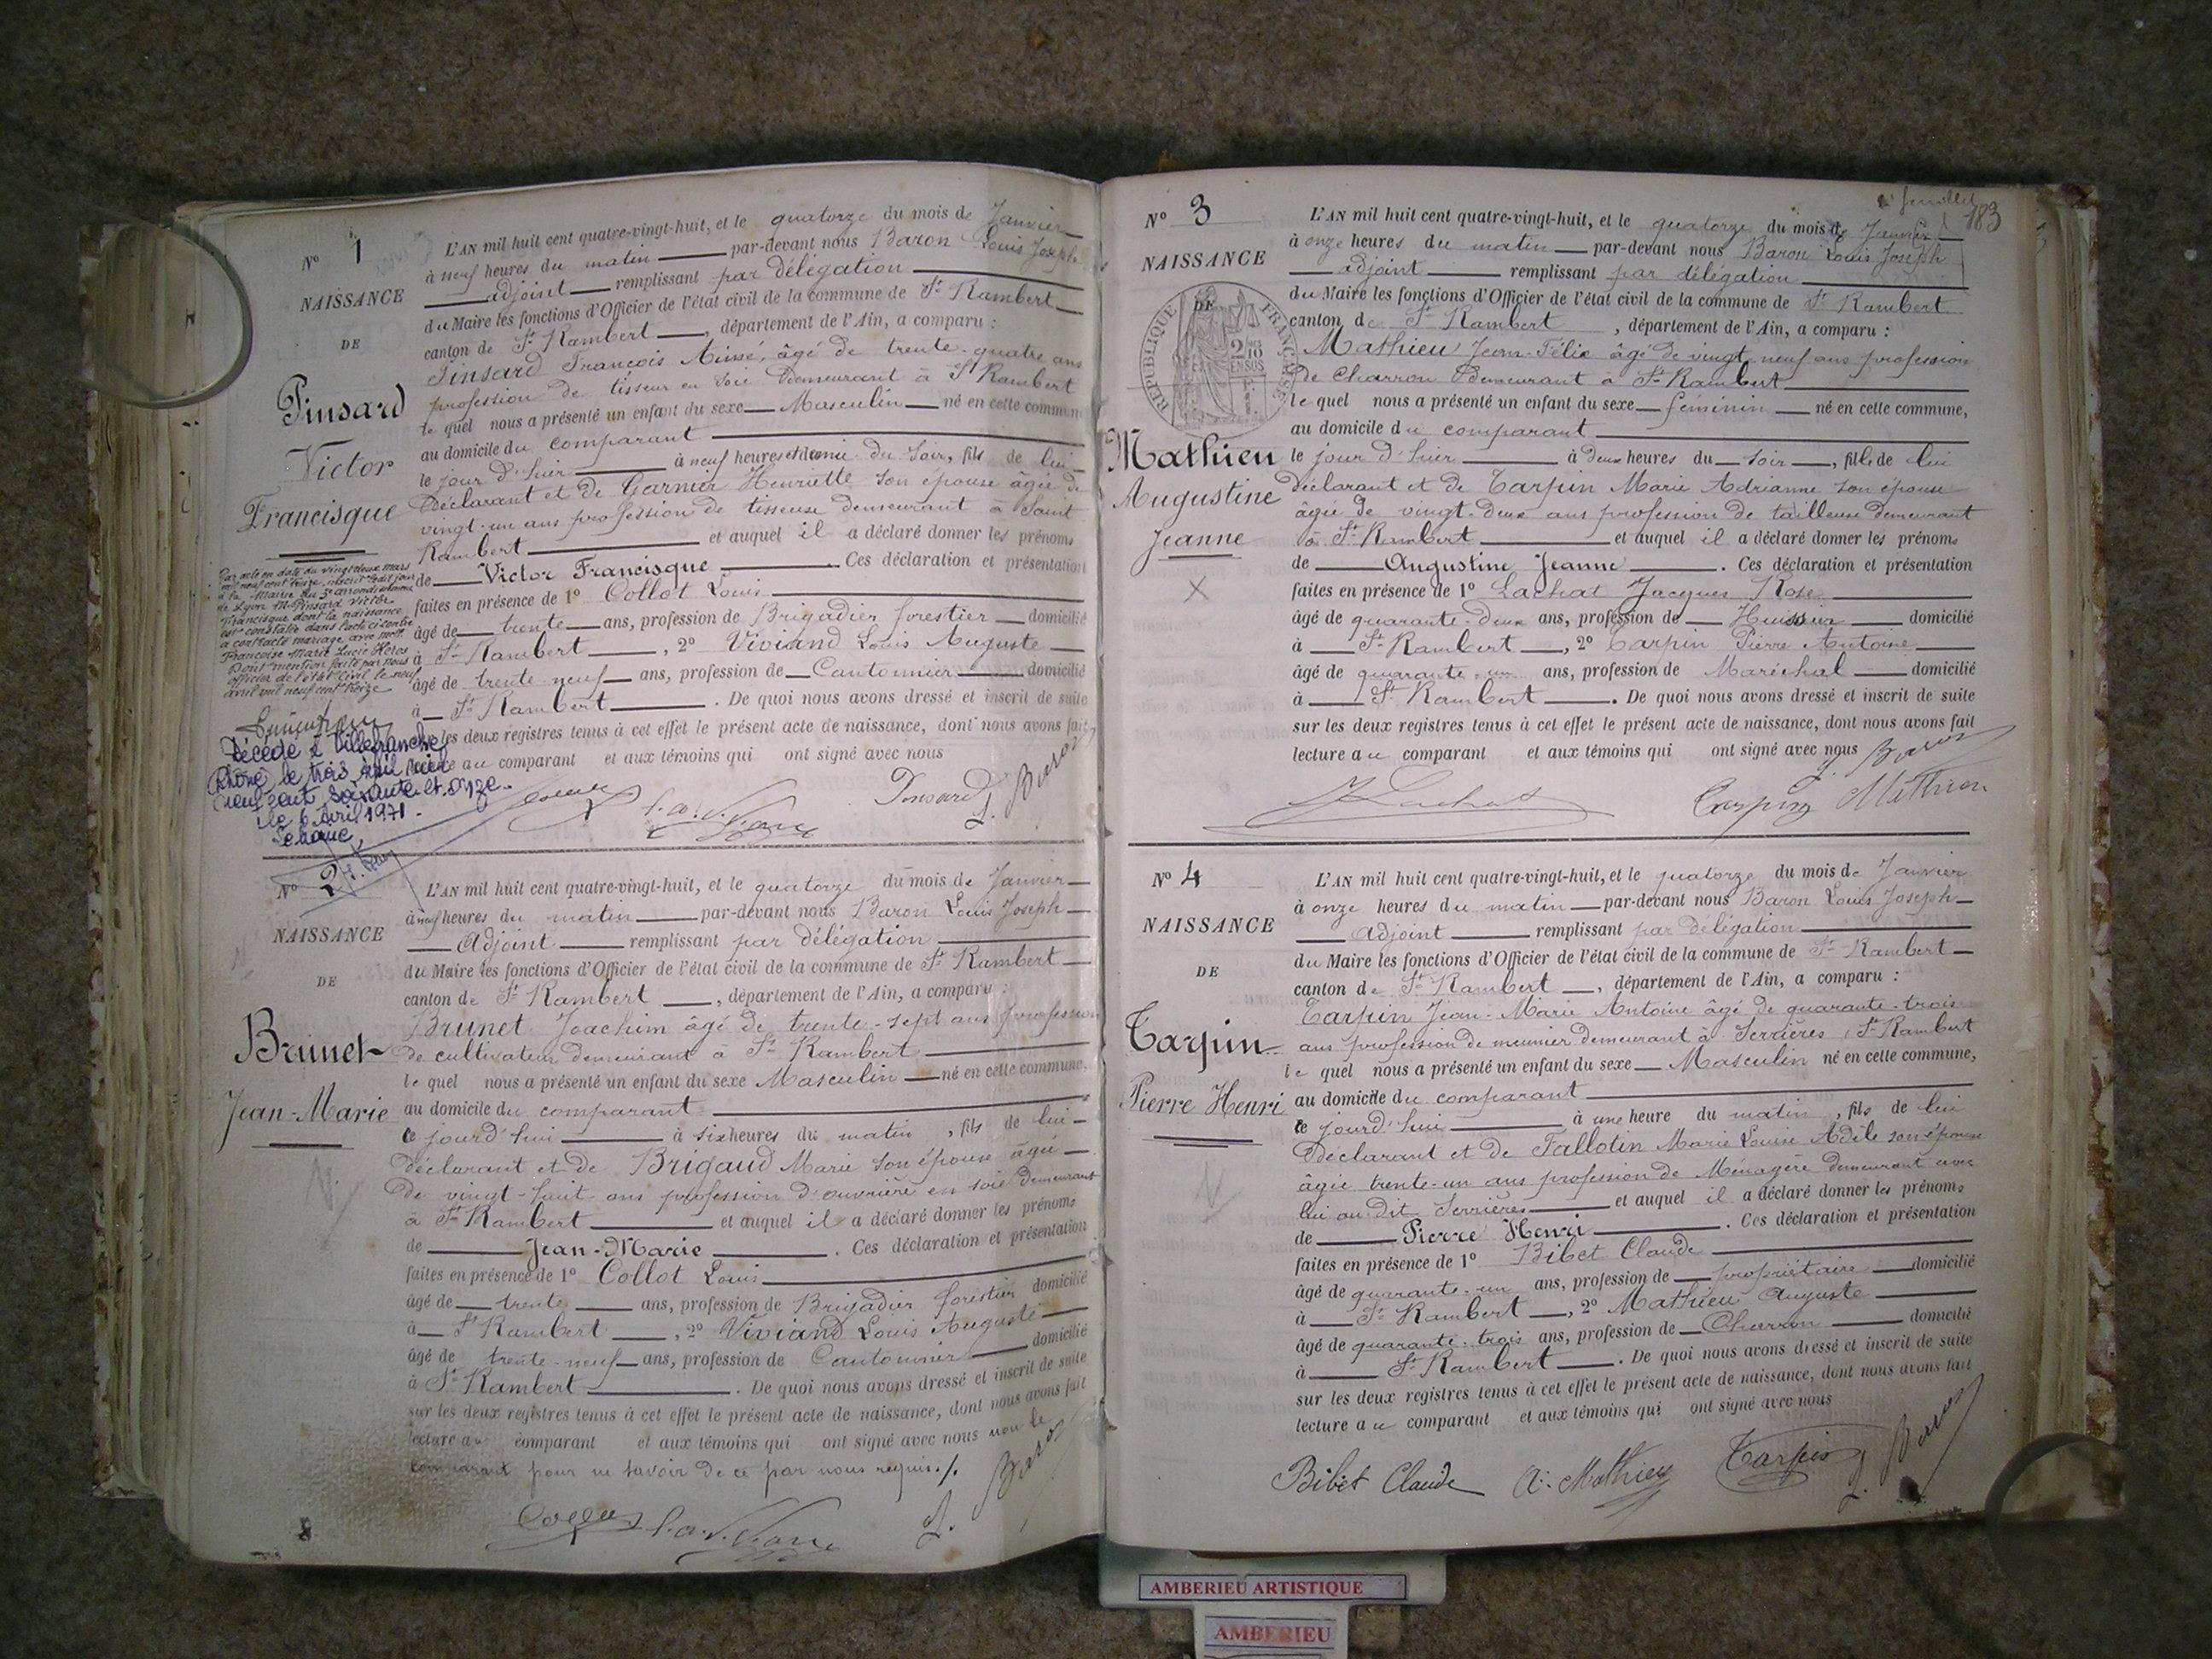 N° 1
NAISSANCE
DE
Pinsard
Victor
Francisque
L'AN mil huit cent quatre-vingt-huit, et le quatorze du mois de Janvier
à neuf heures du matin par-devant nous Baron Louis Joseph
adjoint remplissant par délégation
du Maire les fonctions d'Officier de l'état civil de la commune de St Rambert
canton de St Rambert, département de l'Ain, a comparu :
Pinsard François Aimé, âgé de trente-quatre ans
profession de tisseur en soie demeurant à St Rambert
lequel nous a présenté un enfant du sexe Masculin né en cette commune
au domicile du comparant
le jour d'hier à neuf heures et demie du soir, fils de lui
déclarant et de Garnier Henriette son épouse âgée de
vingt-un ans profession de tisseuse demeurant à Saint
Rambert et auquel il a déclaré donner les prénoms
de Victor Francisque. Ces déclaration et présentation
faites en présence de 1° Collot Louis
âgé de trente ans, profession de Brigadier forestier domicilié
à St Rambert, 2° Viviand Louis Auguste
âgé de trente neuf ans, profession de Cantonnier domicilié
à St Rambert. De quoi nous avons dressé et inscrit de suite
sur les deux registres tenus à cet effet le présent acte de naissance, dont nous avons fait
lecture au comparant et aux témoins qui ont signé avec nous
Pinsard L. Baron
Par acte en date du vingt deux mars
mil neuf cent treize, inscrit ledit jour
à la Mairie du 5e arrondissement
de Lyon M. Pinsard Victor
Francisque dont la naissance
est constatée dans l'acte ci-contre
a contracté mariage avec Melle
Françoise Marie Lucie Héros
Dont mention faite par nous
officier de l'état civil le neuf
avril mil neuf cent treize
Décédé à Villefranche
Rhône le trois avril mil
neuf cent soixante et onze.
le 6 Avril 1971.
N° 2
NAISSANCE
DE
Brunet
Jean-Marie
L'AN mil huit cent quatre-vingt-huit, et le quatorze du mois de Janvier
à neuf heures du matin par-devant nous Baron Louis Joseph
Adjoint remplissant par délégation
du Maire les fonctions d'Officier de l'état civil de la commune de St Rambert
canton de St Rambert, département de l'Ain, a comparu :
Brunet Joachim âgé de trente-sept ans profession
de cultivateur demeurant à St Rambert
lequel nous a présenté un enfant du sexe Masculin né en cette commune,
au domicile du comparant
ce jourd'hui à six heures du matin, fils de lui
déclarant et de Brigaud Marie son épouse âgée
de vingt-huit ans profession d'ouvrière en soie demeurant
à St Rambert et auquel il a déclaré donner les prénoms
de Jean-Marie. Ces déclaration et présentation
faites en présence de 1° Collot Louis
âgé de trente ans, profession de Brigadier forestier domicilié
à St Rambert, 2° Viviand Louis Auguste
âgé de trente-neuf ans, profession de Cantonnier domicilié
à St Rambert. De quoi nous avons dressé et inscrit de suite
sur les deux registres tenus à cet effet le présent acte de naissance, dont nous avons fait
lecture au comparant et aux témoins qui ont signé avec nous non le
comparant pour ne savoir de ce par nous requis./.
L. Baron
183
N° 3
NAISSANCE
DE
RÉPUBLIQUE FRANÇAISE
2/10
EN SUS
Mathieu
Augustine
Jeanne
L'AN mil huit cent quatre-vingt-huit, et le quatorze du mois de Janvier
à onze heures du matin par-devant nous Baron Louis Joseph
adjoint remplissant par délégation
du Maire les fonctions d'Officier de l'état civil de la commune de St Rambert
canton de St Rambert, département de l'Ain, a comparu :
Mathieu Jean-Félix âgé de vingt-neuf ans profession
de Charron demeurant à St Rambert
lequel nous a présenté un enfant du sexe féminin né en cette commune,
au domicile du comparant
le jour d'hier à deux heures du soir, fille de lui
déclarant et de Tarpin Marie Adrianne son épouse
âgée de vingt-deux ans profession de tailleuse demeurant
à St Rambert et auquel il a déclaré donner les prénoms
de Augustine Jeanne. Ces déclaration et présentation
faites en présence de 1° Lachat Jacques Rose
âgé de quarante-deux ans, profession de Huissier domicilié
à St Rambert, 2° Tarpin Pierre Antoine
âgé de quarante-un ans, profession de Maréchal domicilié
à St Rambert. De quoi nous avons dressé et inscrit de suite
sur les deux registres tenus à cet effet le présent acte de naissance, dont nous avons fait
lecture au comparant et aux témoins qui ont signé avec nous L. Baron
J Lachat Tarpin Mathieu
N° 4
NAISSANCE
DE
Tarpin
Pierre Henri
L'AN mil huit cent quatre-vingt-huit, et le quatorze du mois de Janvier
à onze heures du matin par-devant nous Baron Louis Joseph
Adjoint remplissant par délégation
du Maire les fonctions d'Officier de l'état civil de la commune de St Rambert
canton de St Rambert, département de l'Ain, a comparu :
Tarpin Jean-Marie Antoine âgé de quarante-trois
ans profession de meunier demeurant à Serrières, St Rambert
lequel nous a présenté un enfant du sexe Masculin né en cette commune,
au domicile du comparant
ce jourd'hui à une heure du matin, fils de lui
déclarant et de Tallotin Marie Louise Adèle son épouse
âgée trente-un ans profession de Ménagère demeurant avec
lui au dit Serrières et auquel il a déclaré donner les prénoms
de Pierre Henri. Ces déclaration et présentation
faites en présence de 1° Bibet Claude
âgé de quarante-un ans, profession de propriétaire domicilié
à St Rambert, 2° Mathieu Auguste
âgé de quarante-trois ans, profession de Charron domicilié
à St Rambert. De quoi nous avons dressé et inscrit de suite
sur les deux registres tenus à cet effet le présent acte de naissance, dont nous avons fait
lecture au comparant et aux témoins qui ont signé avec nous
Bibet Claude A. Mathieu Tarpin L. Baron
AMBERIEU ARTISTIQUE
AMBERIEU